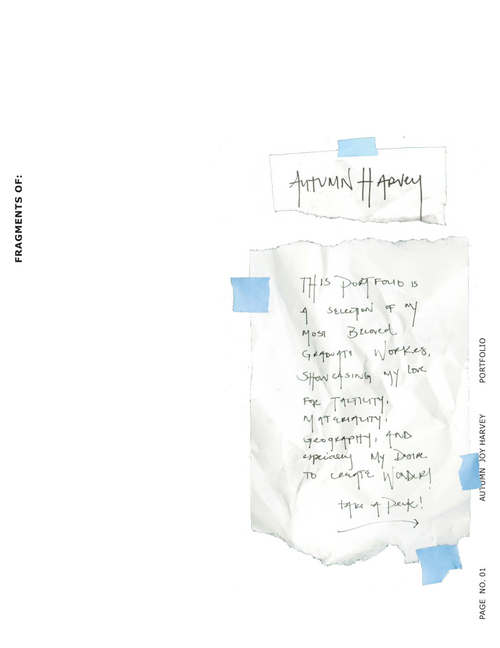 FRAGMENTS OF:
AUTUMN HARVEY
THIS PORTFOLIO IS
A SELECTION OF MY
MOST BELOVED
GRADUATE WORKES,
SHOWCASING MY LOVE
FOR TACTILITY,
MATERIALITY,
GEOGRAPHY, AND
especially MY DESIRE
TO CREATE WONDER!
take A Peek!
PORTFOLIO
AUTUMN JOY HARVEY
PAGE NO. 01